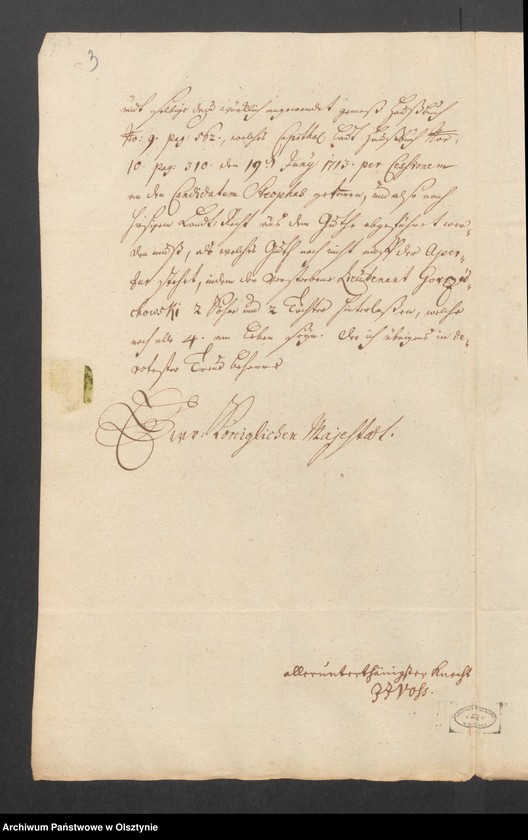 3
und selbige dazu würcklich angewendet gemäß Haußbuch
No: 9. pag: 562. welches Capital laut Haußbuch No:
10. pag: 310. den 19ten Juny 1713. per Cessionem
an den Candidatum Stephas gekommen, und also nach
hiesigem Landt-Recht aus dem Guthe abgeführet wer-
den muß, als welches Guth noch nicht auff der Aper-
tur stehet, indem der verstorbene Lieutenant Gorze-
chowski 2 Söhne und 2 Töchter hinterlaßen, welche
noch alle 4. am Leben seyn. Der ich übrigens in de-
votester Treüe beharre
Ewr: Königlichen Majestädt.
allerunterthänigster Knecht
Voss.
Archiwum Państwowe w Olsztynie